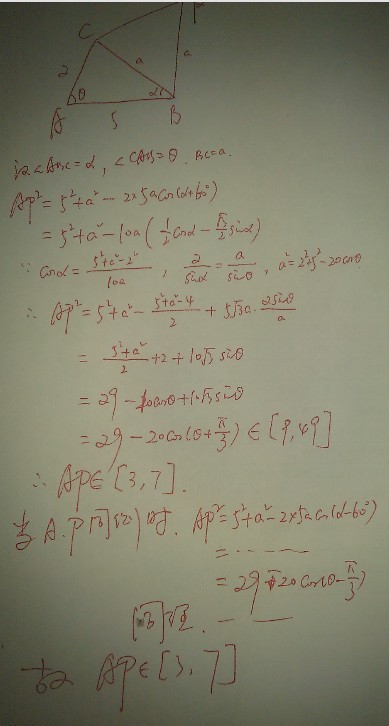 P
C
a
a
2
θ
α
A
5
B
设∠ABC=α, ∠CAB=θ. BC=a.
AP²=5²+a²-2×5a cos(α+60°)
=5²+a²-10a(1/2 cosα-√3/2 sinα)
∵ cosα=(5²+a²-2²)/10a, 2/sinα=a/sinθ, a²=2²+5²-20cosθ
∴ AP²=5²+a²-(5²+a²-4)/2+5√3a·2sinθ/a
=(5²+a²)/2+2+10√3 sinθ
=29-10cosθ+10√3 sinθ
=29-20cos(θ+π/3)∈[9,49]
∴ AP∈[3,7].
当A.P同侧时. AP²=5²+a²-2×5a cos(α-60°)
=……
=29-20cos(θ-π/3)
同理. — —
故 AP∈[3,7]